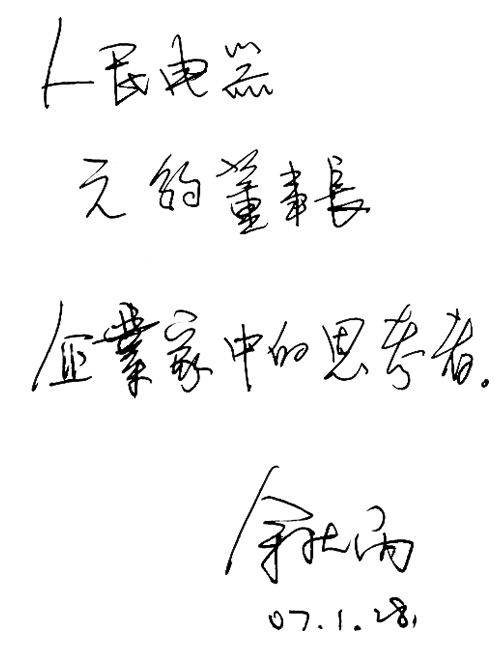 人民电器
元的董事長
企業家中的思考者。
余秋雨
07.1.28.